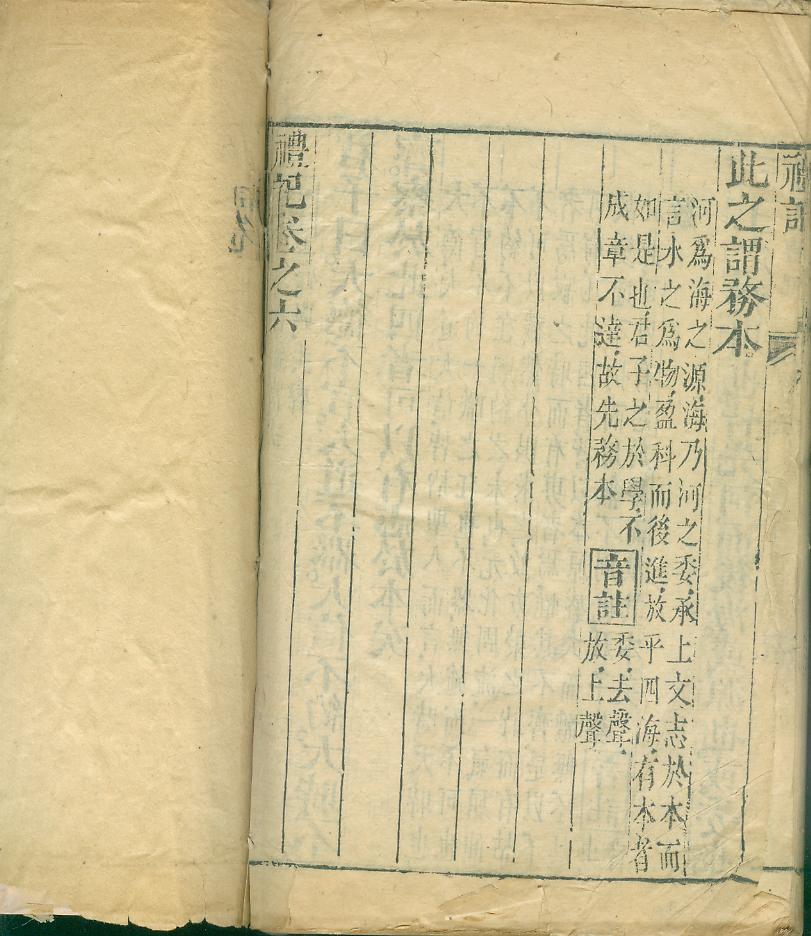 禮記
此之謂務本
河爲海之源海乃河之委承上文志於本而
言水之爲物盈科而後進放乎四海有本者
如是也君子之於學不
成章不達故先務本
音註
委去聲
放上聲
禮記卷之六